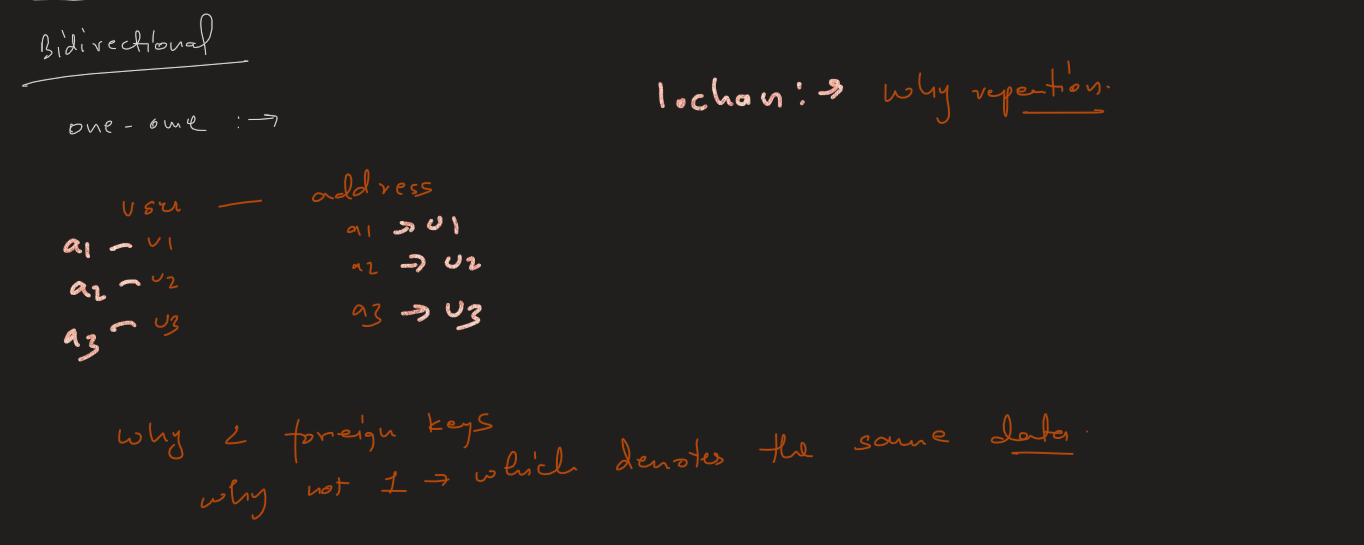 Bidirectional
one - one :→
lochan :→ why repeation.
user — address
a1 – u1 a1 → u1
a2 – u2 a2 → u2
a3 – u3 a3 → u3
why 2 foreign keys
why not 1 → which denotes the same data.